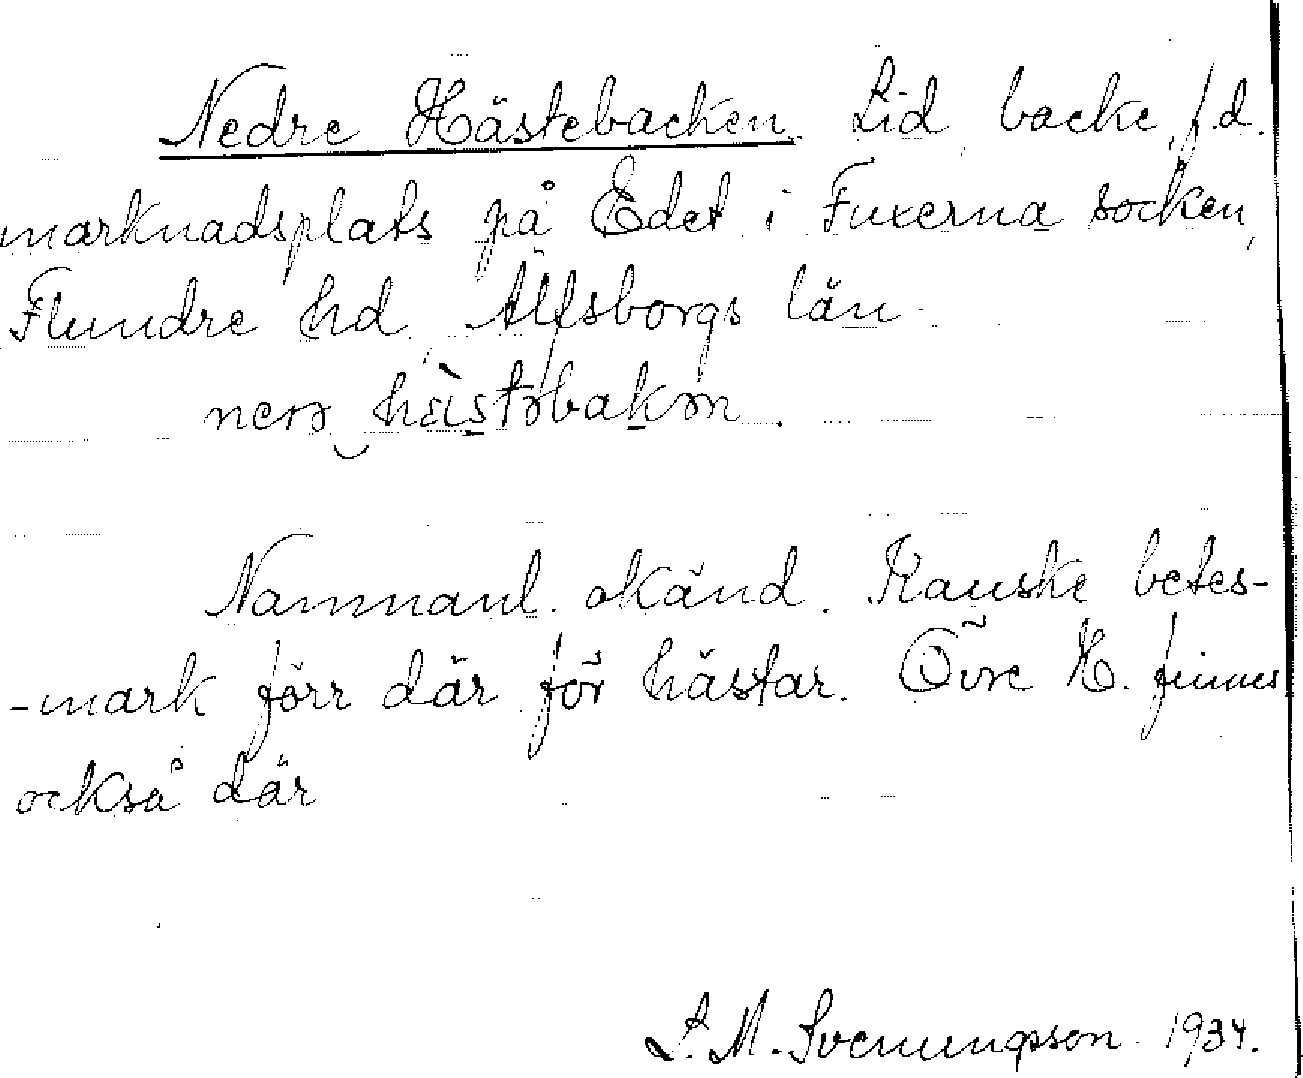 Nedre Hästebacken. Lid, backe, f.d.
marknadsplats på Edet i Fuxerna socken,
Flundre hd, Älfsborgs län.
Namnanl. okänd. Kanske betes-
-mark förr där för hästar. Övre H. finnes
också där
S. M. Svenungsson 1934.